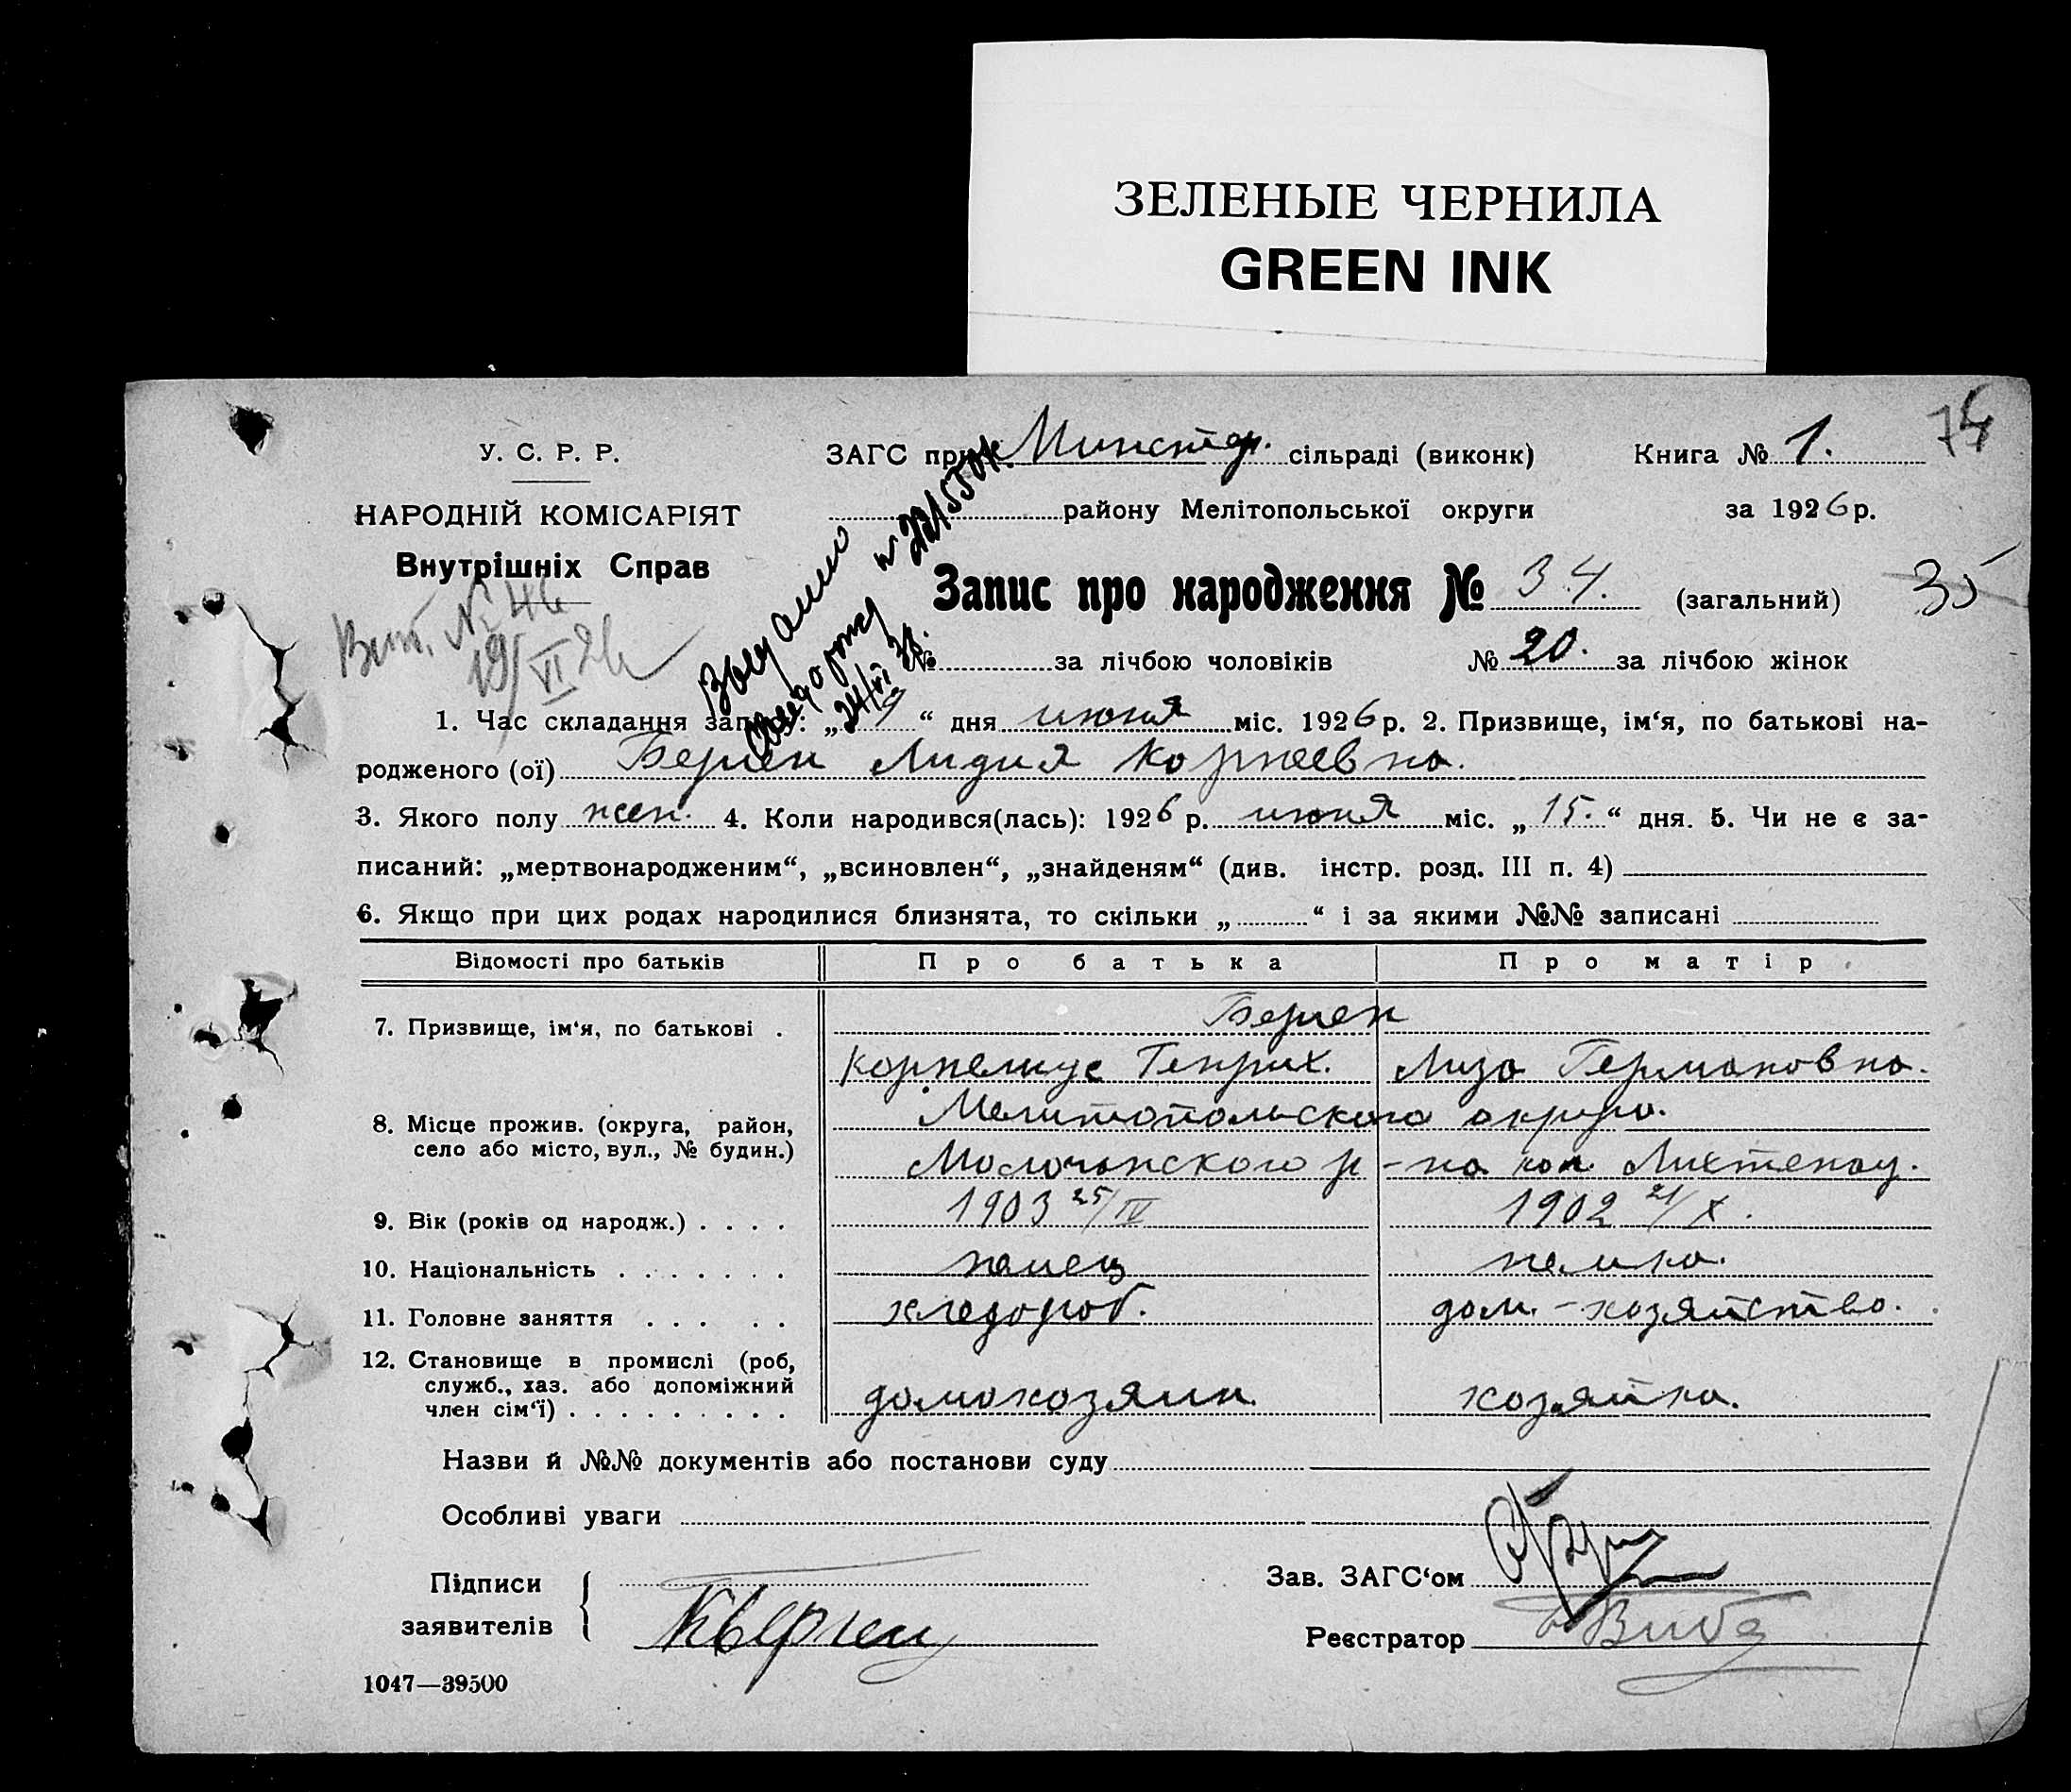 ЗЕЛЕНЫЕ ЧЕРНИЛА
GREEN INK
74
У. С. Р. Р.
ЗАГС при Минстер. сільраді (виконк)
Книга № 1.
НАРОДНІЙ КОМІСАРІЯТ
району Мелітопольської округи
за 1926 р.
Внутрішніх Справ
Запис про народження № 34. (загальний)
35
№ за лічбою чоловіків № 20. за лічбою жінок
19/VI 26
Выдано
24/VI
1. Час складання запису: „19“ дня июня міс. 1926 р. 2. Призвище, ім‘я, по батькові на-
родженого (ої) Берген Лидия Корнеевна.
3. Якого полу жен. 4. Коли народився(лась): 1926 р. июня міс. „15.“ дня. 5. Чи не є за-
писаний: „мертвонародженим“, „всиновлен“, „знайденям“ (див. інстр. розд. III п. 4)
6. Якщо при цих родах народилися близнята, то скільки „ “ і за якими №№ записані
Відомості про батьків Про батька Про матір
7. Призвище, ім‘я, по батькові . Берген
Корнелиус Генрих. Лиза Германовна.
8. Місце прожив. (округа, район, село або місто, вул., № будин.) Мелитопольского округа.
Молочанского р-на кол. Лихтенау.
9. Вік (років од народж.) . . . . 1903 25/IV 1902 21/X.
10. Національність . . . . . . . немец немка.
11. Головне заняття . . . . . хлебороб. дом.-хозяйство.
12. Становище в промислі (роб,
служб., хаз. або допоміжний
член сім‘ї) . . . . . . . . . домохозяин. хозяйка.
Назви й №№ документів або постанови суду
Особливі уваги
Підписи
заявителів
КБерген
Зав. ЗАГС‘ом
Реєстратор Вибе
1047—39500